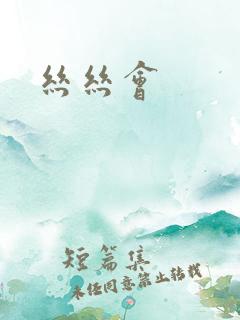 絲絲會
短篇集
未經同意禁止轉載